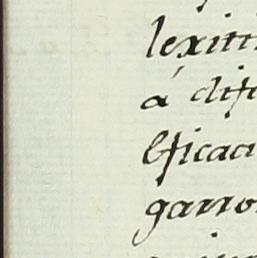 lexiti
á dif
eficaci
garro